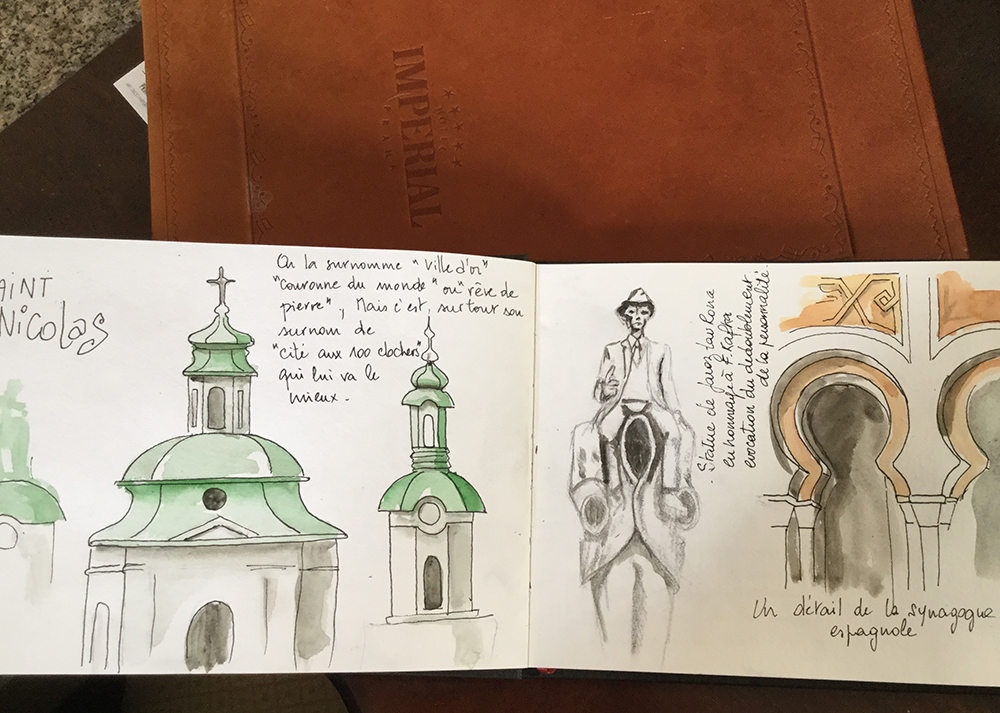 HOTEL
IMPERIAL
PRAHA
AINT
NicolaS
On la surnomme "Ville d'or"
"Couronne du monde" ou "rêve de
pierre", Mais c'est, surtout son
surnom de
"cité aux 100 clochers"
qui lui va le
mieux.
- Statue de Jaroslav Rona
en hommage à F. Kafka
évocation du dédoublement
de la personnalité.
Un détail de la synagogue
espagnole